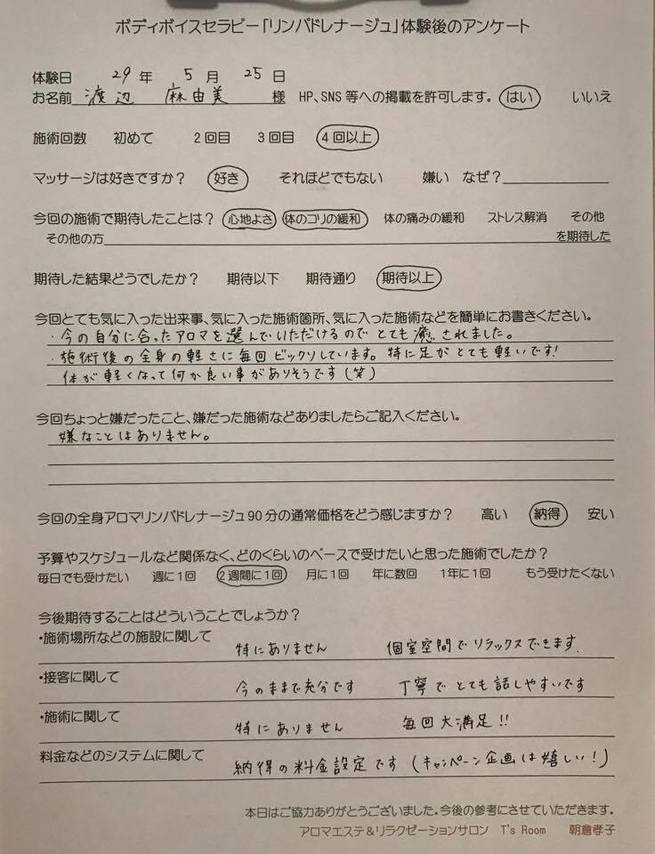 ボディボイスセラピー「リンパドレナージュ」体験後のアンケート
体験日 29 年 5 月 25 日
お名前 渡辺 麻由美 様 HP、SNS 等への掲載を許可します。 はい いいえ
施術回数 初めて 2回目 3回目 4回以上
マッサージは好きですか? 好き それほどでもない 嫌い なぜ?
今回の施術で期待したことは? 心地よさ 体のコリの緩和 体の痛みの緩和 ストレス解消 その他
その他の方 を期待した
期待した結果どうでしたか? 期待以下 期待通り 期待以上
今回とても気に入った出来事、気に入った施術箇所、気に入った施術などを簡単にお書きください。
・今の自分に合ったアロマを選んでいただけるのでとても癒されました。
・施術後の全身の軽さに毎回ビックリしています。特に足がとても軽いです!
体が軽くなって何か良い事がありそうです(笑)
今回ちょっと嫌だったこと、嫌だった施術などありましたらご記入ください。
嫌なことはありません。
今回の全身アロマリンパドレナージュ90分の通常価格をどう感じますか? 高い 納得 安い
予算やスケジュールなど関係なく、どのくらいのペースで受けたいと思った施術でしたか?
毎日でも受けたい 週に1回 2週間に1回 月に1回 年に数回 1年に1回 もう受けたくない
今後期待することはどういうことでしょうか?
・施術場所などの施設に関して 特にありません 個室空間でリラックスできます。
・接客に関して 今のままで充分です 丁寧でとても話しやすいです
・施術に関して 特にありません 毎回大満足!!
料金などのシステムに関して 納得の料金設定です(キャンペーン企画は嬉しい!)
本日はご協力ありがとうございました。今後の参考にさせていただきます。
アロマエステ&リラクゼーションサロン T's Room 朝倉孝子